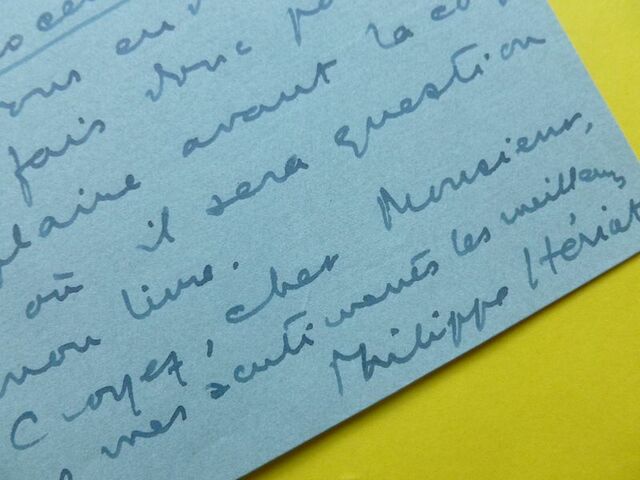 fais donc
avant la
où il sera question
mon livre.
Croyez, cher Monsieur,
mes sentiments les meilleurs,
Philippe Hériat